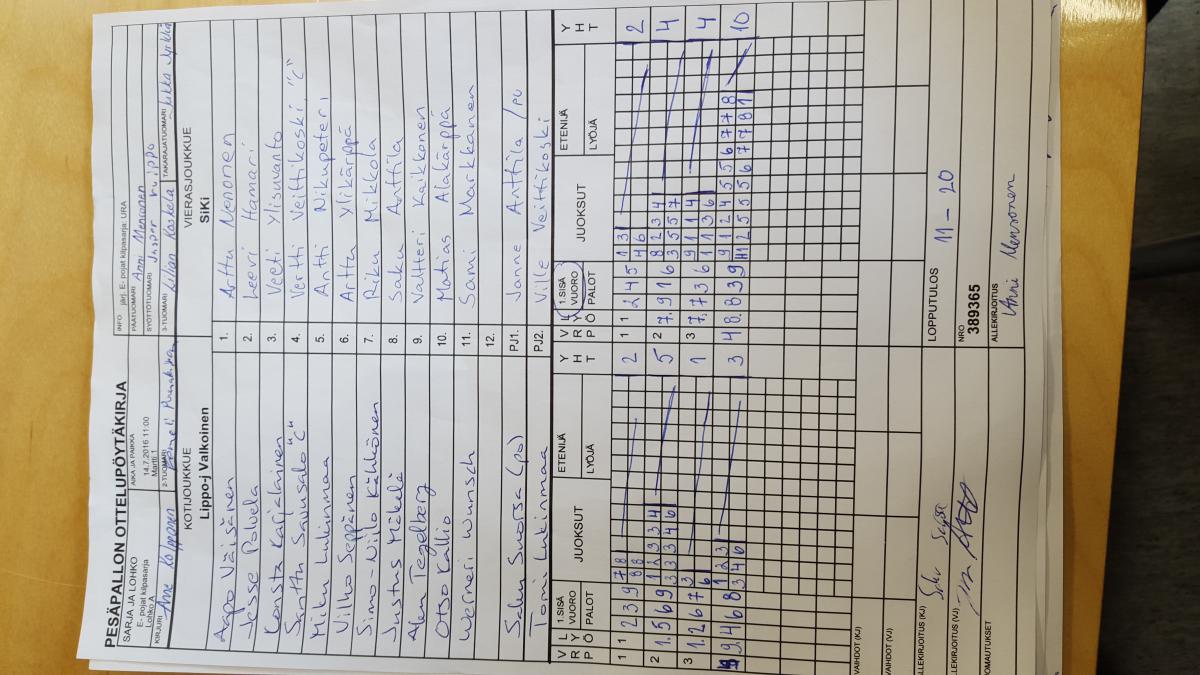 PESÄPALLON OTTELUPÖYTÄKIRJA
SARJA JA LOHKO
E- pojat kilpasarja
Lohko A
AIKA JA PAIKKA
14.7.2016 11:00
Martti 1
INFO järj. E- pojat kilpasarja: URA
PÄÄTUOMARI Anni Mensonen
SYÖTTÖTUOMARI
KIRJURI Anne Kolppanen
2-TUOMARI
3-TUOMARI Lilian Kaskela
TAKARAJATUOMARI
KOTIJOUKKUE
Lippo-j Valkoinen
VIERASJOUKKUE
SiKi
Aapo Väisänen 1. Arttu Nenonen
Jesse Polvela 2. Leevi Hamari
Konsta Karjalainen 3. Veeti Ylisuvanto
Santtu Savusalo "C" 4. Vertti Veittikoski "C"
Miku Lukinmaa 5. Antti Nikupeteri
Villa Seppänen 6. Arttu Ylikärppä
Simo-Niilo Kähkönen 7. Riku Mikkola
Justus Mäkelä 8. Saku Anttila
Alan Tegelberg 9. Valtteri Kaikkonen
Otso Kallio 10. Matias Alakärppä
Werneri Wunsch 11. Sami Markkanen
12.
Saku Suorsa (po) PJ1. Janne Anttila / PU
Tomi Lukinmaa PJ2. Ville Veittikoski
V R P L Y Ö 1.SISÄ VUORO PALOT JUOKSUT ETENIJÄ LYÖJÄ Y H T V R P L Y Ö 1.SISÄ VUORO PALOT JUOKSUT ETENIJÄ LYÖJÄ Y H T
1 1 2 3 9 7 8 2 1 1 2 4 5 1 3 2
8 8 4 6
2 1. 5 6 9 1 2 3 3 4 5 2 7. 9 1 6 8 2 3 4 4
3 3 3 4 6 3 5 5 7
3 1. 2 6 7 3 1 3 7. 7 3 6 9 1 1 4 4
6 1 1 3 6
9. 4 6 8 1 2 3 3 4 8. 8 3 9 9 1 2 4 5 5 6 7 7 8 10
3 4 6 11 2 5 5 5 6 7 7 8 1
VAIHDOT (KJ)
VAIHDOT (VJ)
ALLEKIRJOITUS (KJ)
ALLEKIRJOITUS (VJ)
HUOMAUTUKSET
LOPPUTULOS 11 - 20
NRO
389365
ALLEKIRJOITUS
Anni Mensonen